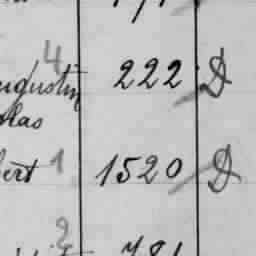 4
ugustin 222 D
olas
bert 1 1520 D
2
781